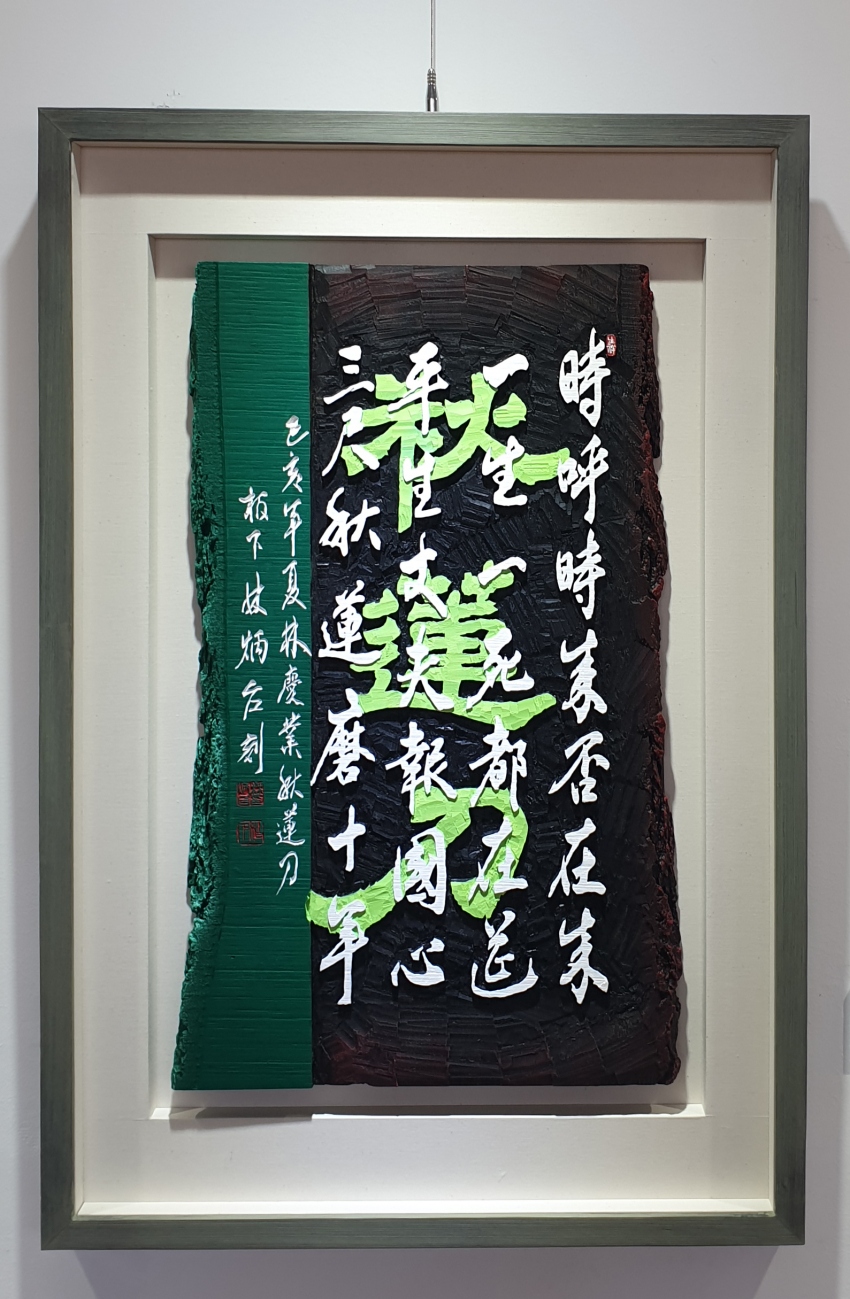 時呼時來否在來
一生一死都在筵
平生丈夫報國心
三尺秋蓮磨十年
秋蓮刀
己亥年夏林慶業秋蓮刀
下 炳 刻